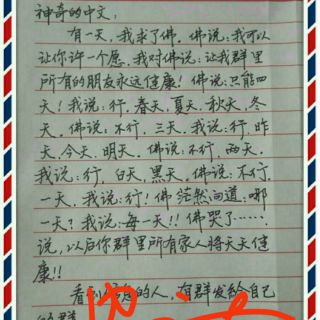 神奇的中文:
有一天,我求了佛,佛说:我可以
让你许一个愿,我对佛说:让我群里
所有的朋友永远健康!佛说:只能四
天!我说:行,春天、夏天、秋天、冬
天。佛说:不行,三天。我说:行,昨
天、今天、明天。佛说:不行,两天。
我说:行,白天、黑天。佛说:不行,
一天。我说:行!佛茫然问道:哪
一天?我说:每一天!!佛哭了……
说,以后你群里所有家人将天天健
康!!
看到信息的人,有群发给自己
的群